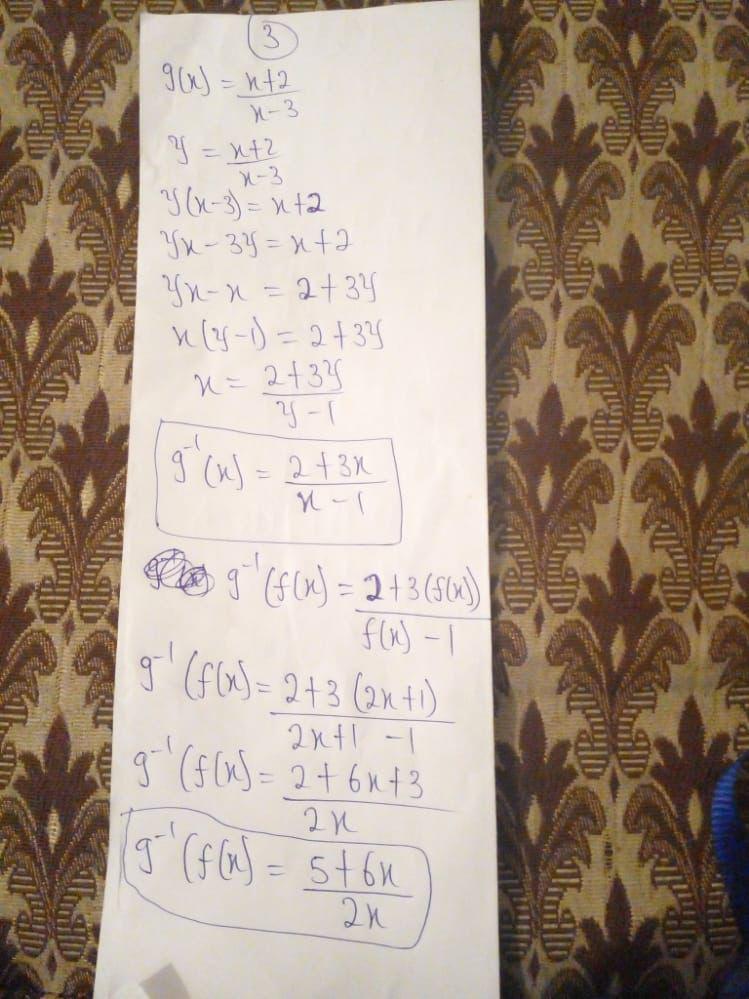 3
g(x) = x+2 / x-3
y = x+2 / x-3
y(x-3) = x+2
yx - 3y = x+2
yx - x = 2+3y
x(y-1) = 2+3y
x = 2+3y / y-1
g⁻¹(x) = 2+3x / x-1
g⁻¹(f(x) = 2+3(f(x)) / f(x) - 1
g⁻¹(f(x) = 2+3(2x+1) / 2x+1 -1
g⁻¹(f(x) = 2+6x+3 / 2x
g⁻¹(f(x) = 5+6x / 2x